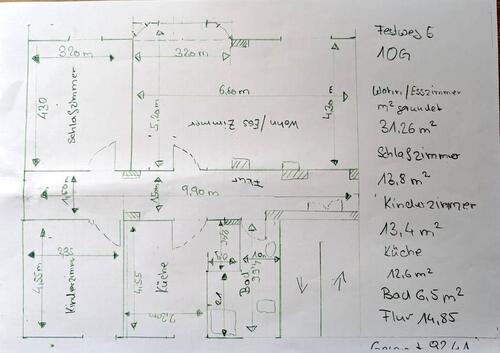 Fesweg 6
10G
Wohn/Esszimmer
m² gerundet
31.26 m²
Schlafzimmer
13,8 m²
Kinderzimmer
13,4 m²
Küche
12,6 m²
Bad 6,5 m²
Flur 14,85
3.20m
3.20m
6,60m
430
Schlafzimmer
5.20m
Wohn/Ess Zimmer
4.30m
1.50m
1.5m
9,90m
Flur
4,55m
Kinderzimm
4.55
Küche
Bad